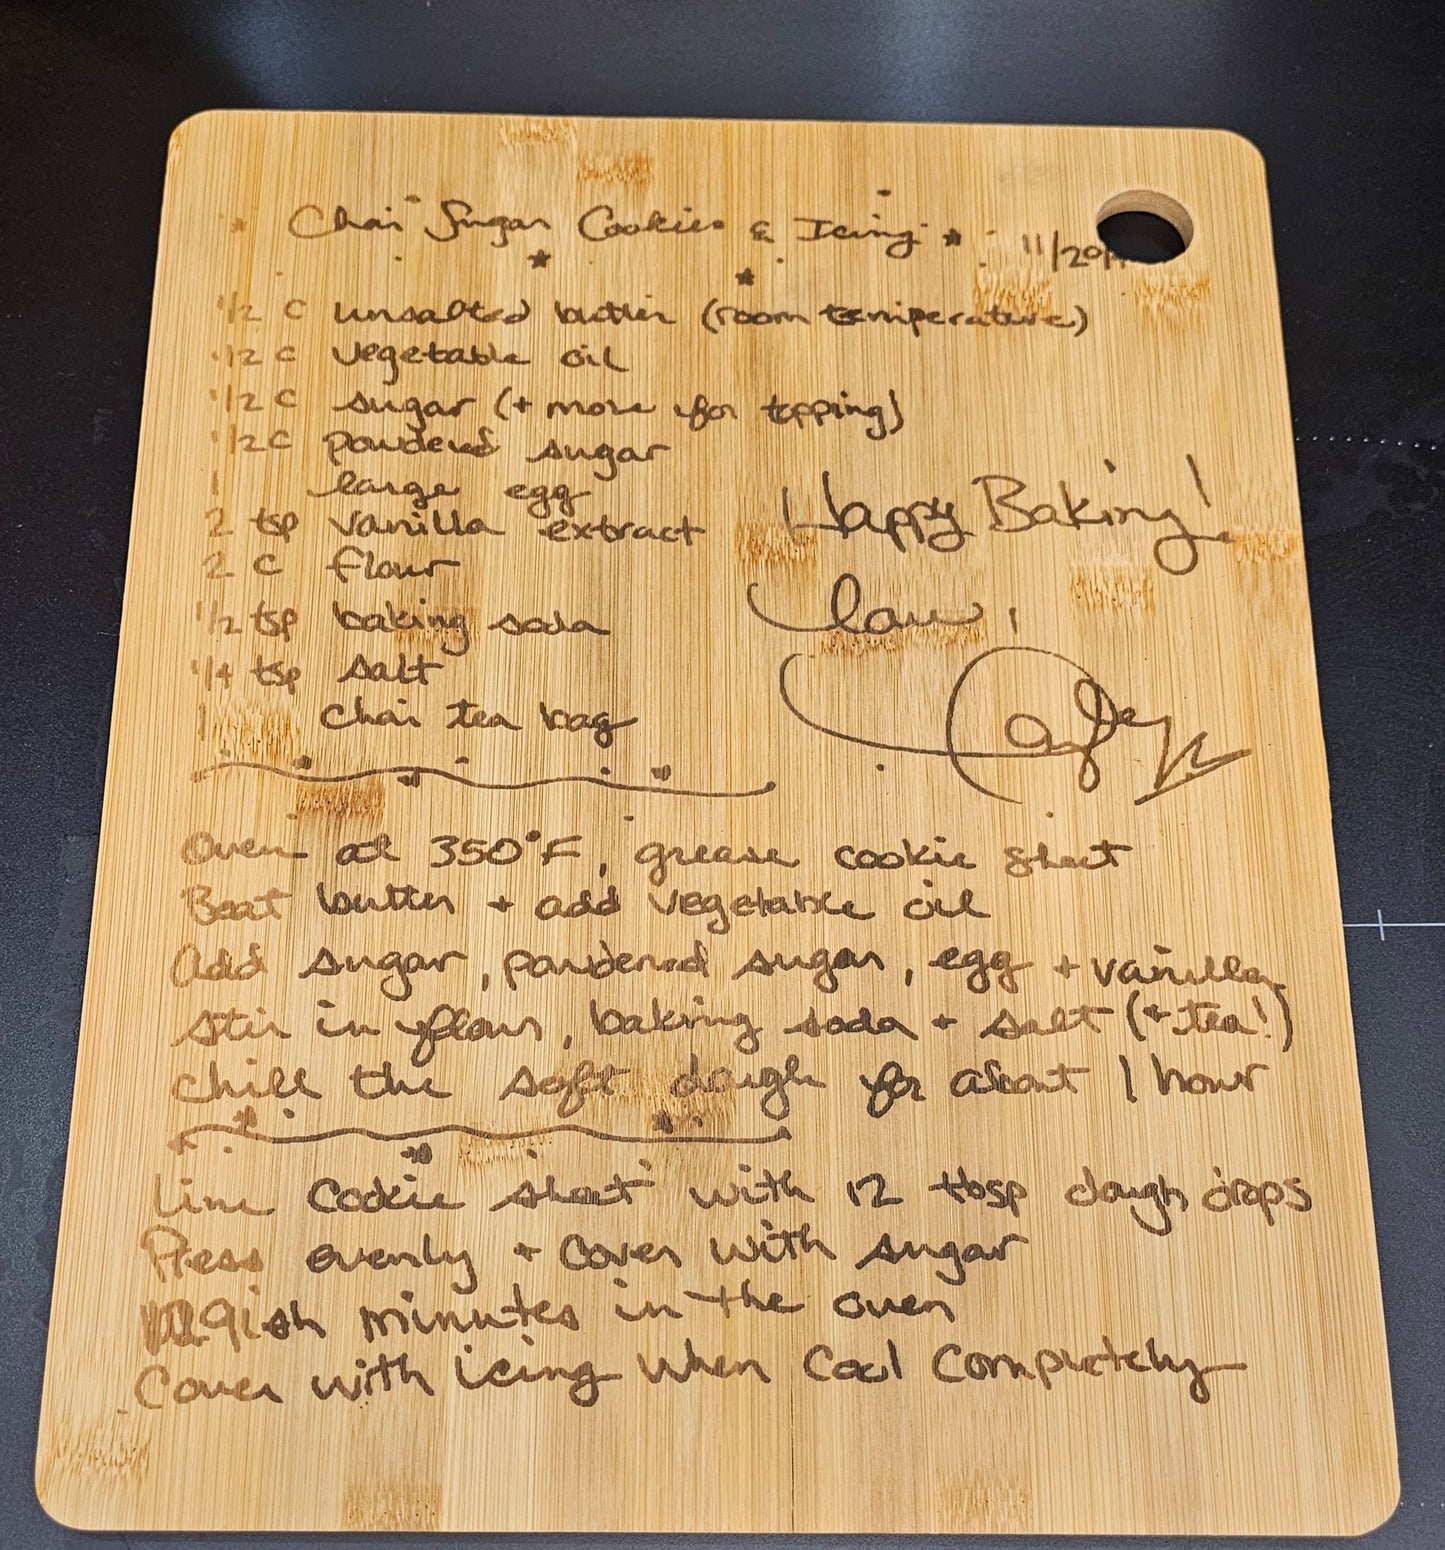 Chai Sugar Cookies & Icing
11/20
1/2 C unsalted butter (room temperature)
1/2 C vegetable oil
1/2 C sugar (+ more for topping)
1/2 C powdered sugar
1 large egg
2 tsp vanilla extract
2 C flour
1/2 tsp baking soda
1/4 tsp salt
1 chai tea bag
Happy Baking!
Love,
Oven at 350°F, grease cookie sheet
Beat butter + add vegetable oil
Add sugar, powdered sugar, egg + vanilla
Stir in flour, baking soda + salt (+ tea!)
Chill the soft dough for about 1 hour
Line cookie sheet with 12 tbsp dough drops
Press evenly + cover with sugar
9ish minutes in the oven
Cover with icing when cool completely